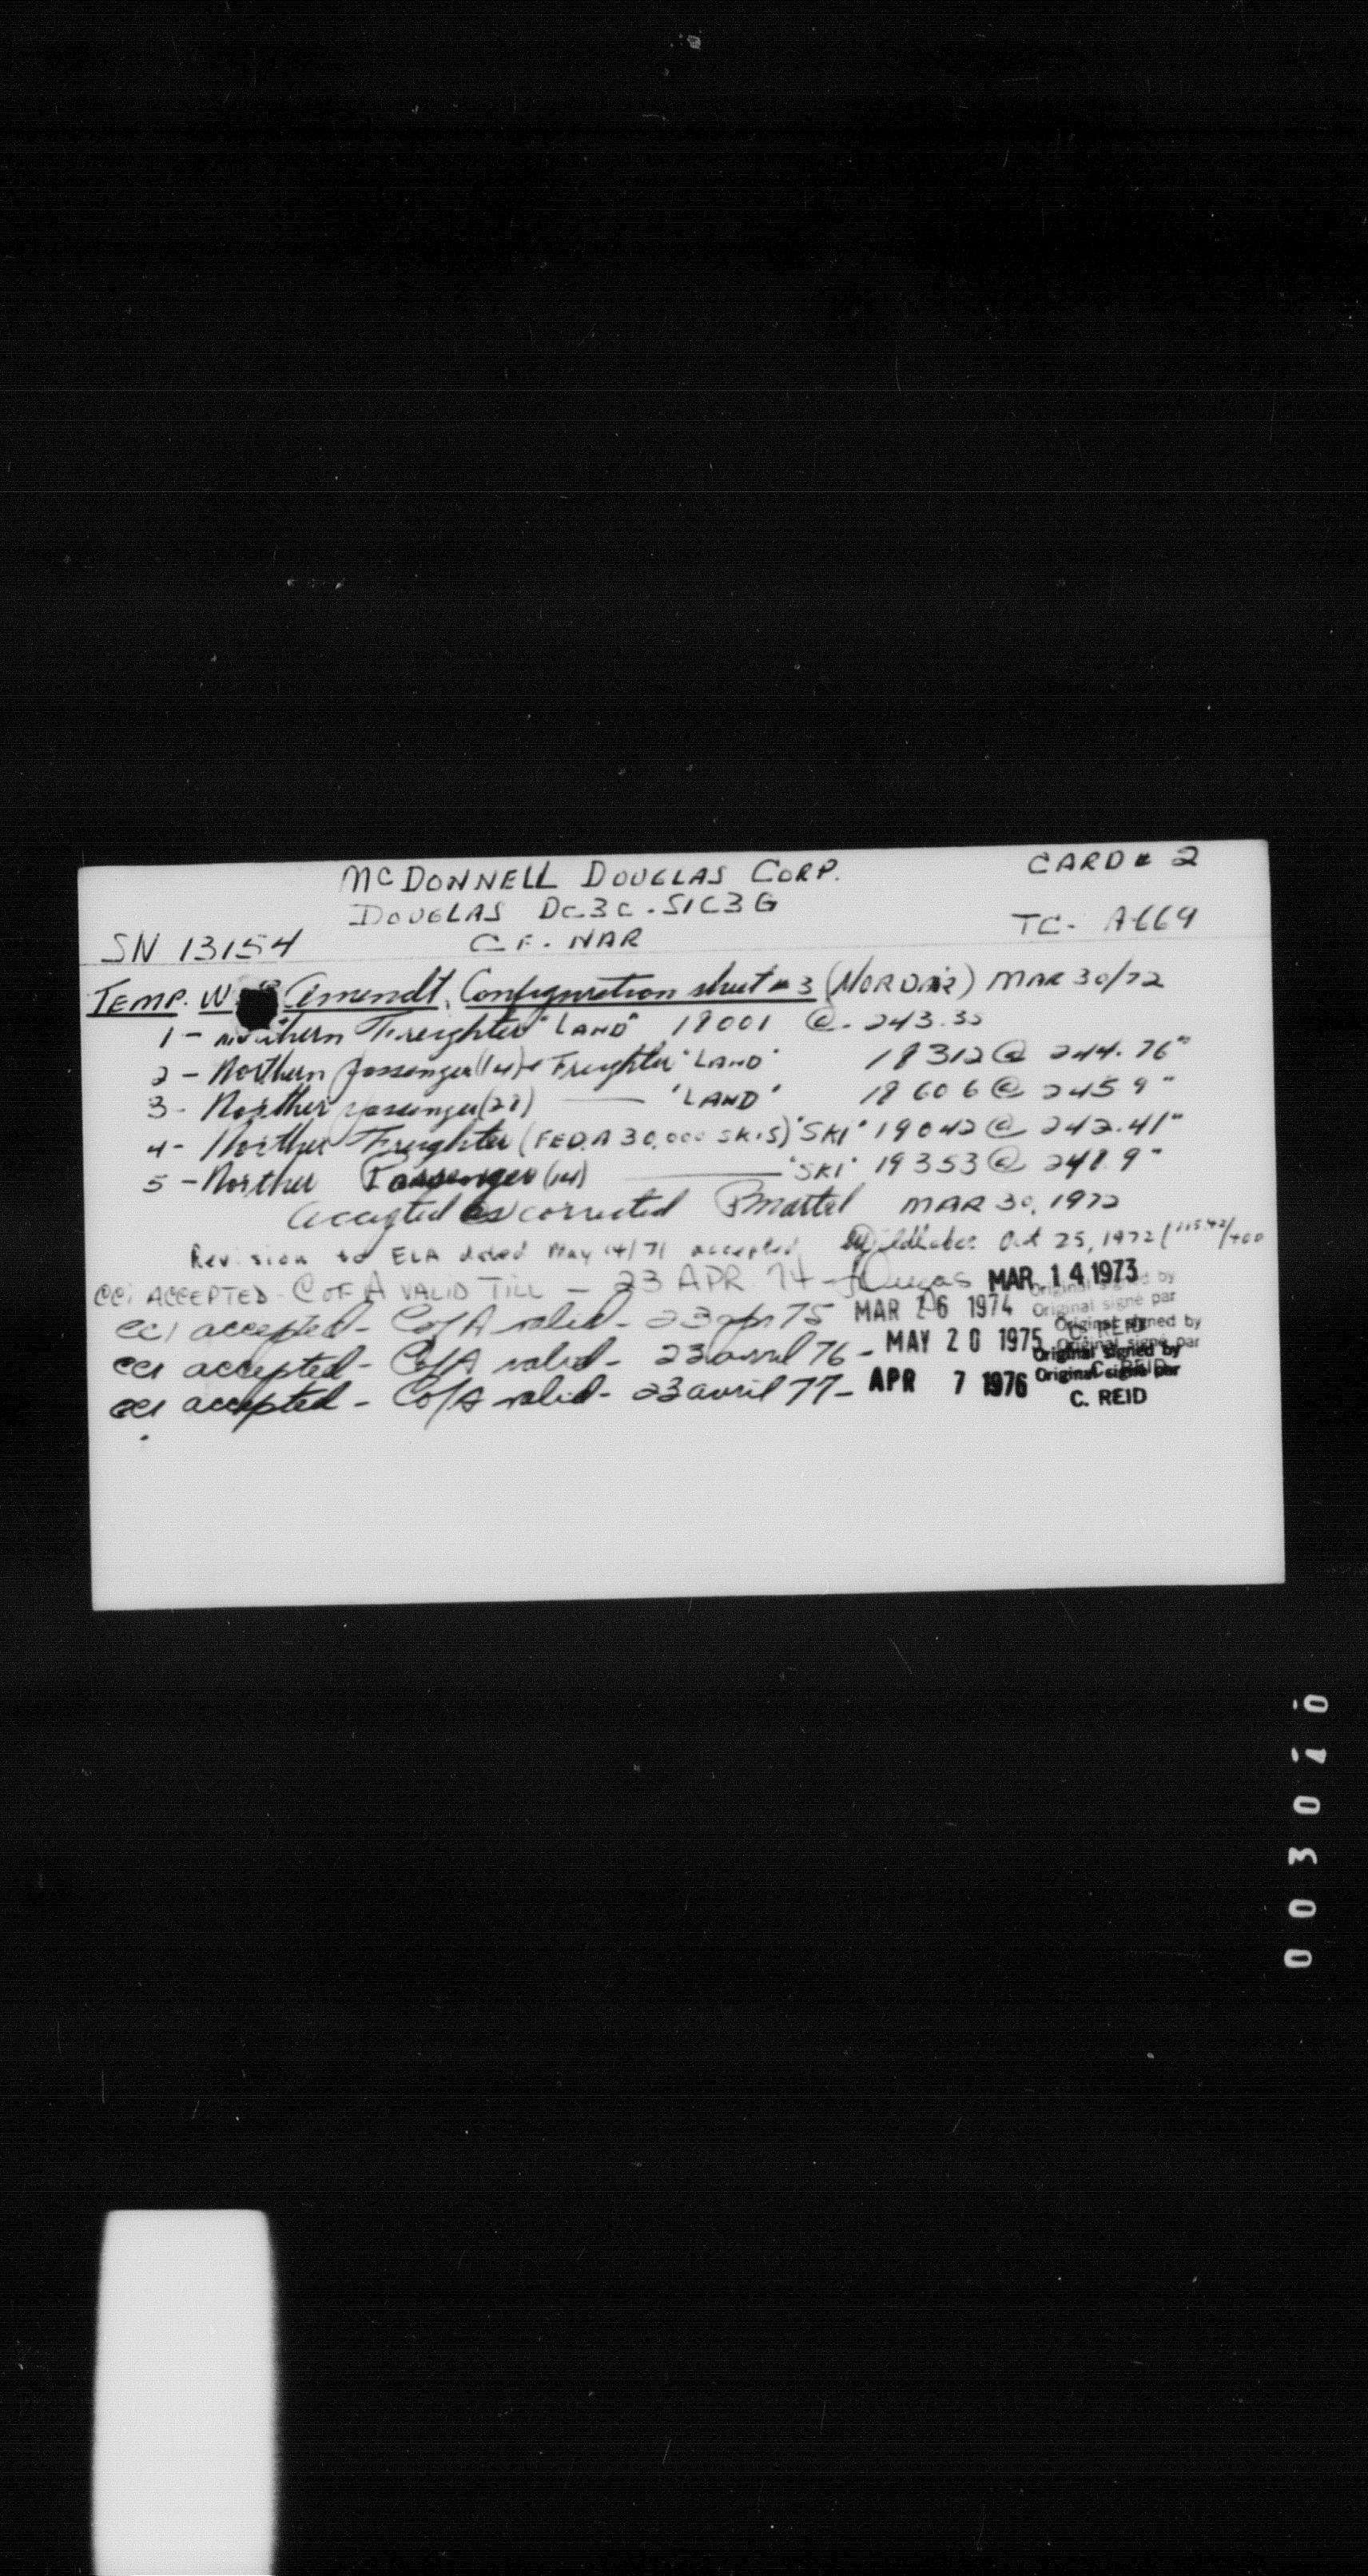 McDONNELL DOUGLAS CORP. CARD # 2
DOUGLAS DC3C-S1C3G
SN 13154 CF-NAR TC- A-669
TEMP. W Amendt, Configuration sheet # 3 (NORDAIR) MAR 30/72
1 - Northern Freighter "LAND" 18001 @ 243.35
2 - Northern passenger (14) + Freighter "LAND" 18312 @ 244.76"
3 - Norther passenger (28) — "LAND" 18606 @ 245.9"
4 - Norther Freighter (FED. A 30,000 SKIS) "SKI" 19042 @ 242.41"
5 - Norther Passenger (14) — "SKI" 19353 @ 248.9"
Accepted as corrected P Martel MAR 30, 1972
Revision to ELA dated May 14/71 accepted Oct 25, 1972
CCI ACCEPTED - C OF A VALID TILL - 23 APR 74 - MAR 14 1973
CCI accepted - C of A valid - 23 apr 75 MAR 26 1974 Original signé par
CCI accepted - C of A valid - 23 avril 76 - MAY 20 1975 Original signed by
CCI accepted - C of A valid - 23 avril 77 - APR 7 1976 Original signé par
C. REID
003040